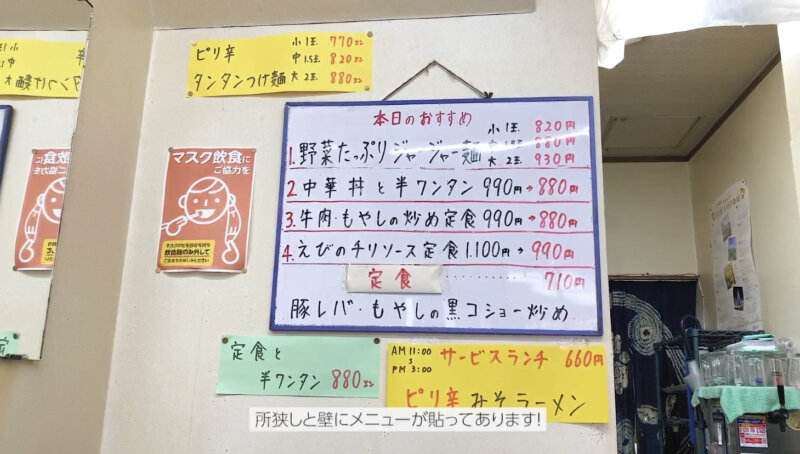 ピリ辛 小1玉 770エン
中1.5玉 820エン
タンタンつけ麺 大2玉 880エン
本日のおすすめ
小1玉 820円
1. 野菜たっぷりジャージャー麺 880円
大2玉 930円
2. 中華丼と半ワンタン 990円→880円
3. 牛肉・もやしの炒め定食 990円→880円
4. えびのチリソース定食 1.100円→990円
定食 ・・・・・・・・ 710円
豚レバ・もやしの黒コショー炒め
マスク飲食に
ご協力を
マスクの化を部分を持ち
飲食時のみ外して
定食と
半ワンタン 880エン
AM 11:00
〜
PM 3:00
サービスランチ 660円
ピリ辛 みそラーメン
所狭しと壁にメニューが貼ってあります!